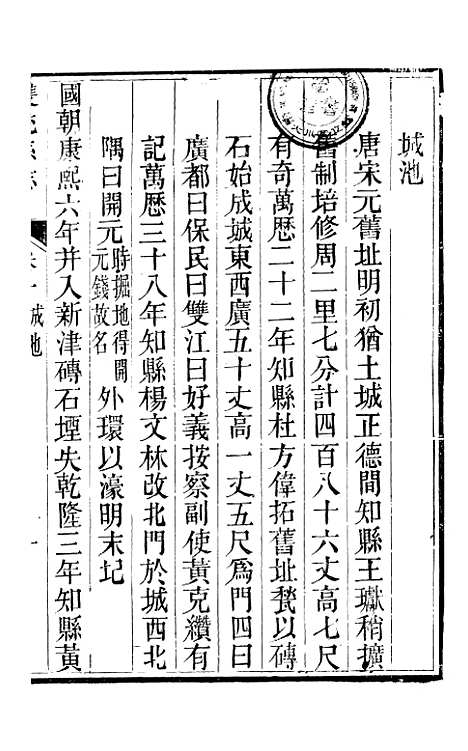 城池
唐宋元舊址明初猶土城正德間知縣王𤣱稍擴
舊制培修周二里七分計四百八十六丈高七尺
有奇萬歷二十二年知縣杜方偉拓舊址甃以磚
石始成城東西廣五十丈高一丈五尺爲門四曰
廣都曰保民曰雙江曰好義按察副使黃克纘有
記萬歷三十八年知縣楊文林改北門於城西北
隅曰開元時掘地得開元錢故名外環以濠明末圮
國朝康熙六年并入新津磚石堙失乾隆三年知縣黃
雙流縣志 卷一 城池